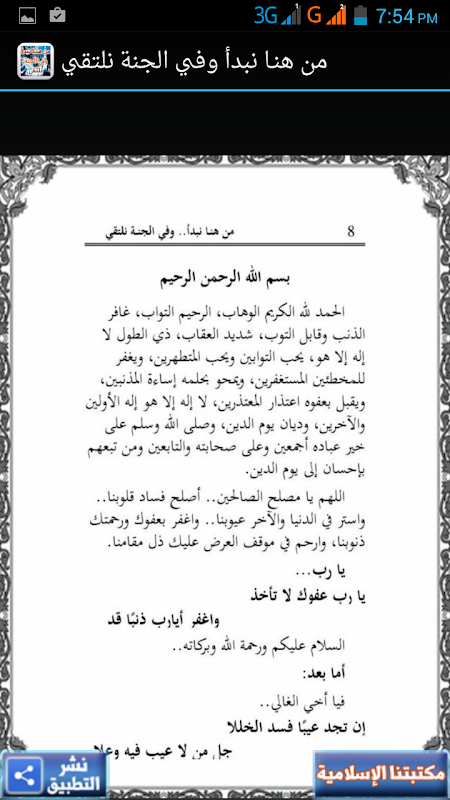 3G G 7:54 PM
من هنا نبدأ وفي الجنة نلتقي
8 من هنا نبدأ.. وفي الجنة نلتقي
بسم الله الرحمن الرحيم
الحمد لله الكريم الوهاب، الرحيم التواب، غافر
الذنب وقابل التوب، شديد العقاب، ذي الطول لا
إله إلا هو، يحب التوابين ويحب المتطهرين، ويغفر
للمخطئين المستغفرين، ويمحو بحلمه إساءة المذنبين،
ويقبل بعفوه اعتذار المعتذرين، لا إله إلا هو إله الأولين
والآخرين، وديان يوم الدين، وصلى الله وسلم على
خير عباده أجمعين وعلى صحابته والتابعين ومن تبعهم
بإحسان إلى يوم الدين.
اللهم يا مصلح الصالحين.. أصلح فساد قلوبنا..
واستر في الدنيا والآخر عيوبنا.. واغفر بعفوك ورحمتك
ذنوبنا، وارحم في موقف العرض عليك ذل مقامنا.
يا رب...
يا رب عفوك لا تأخذ
واغفر أيارب ذنبًا قد
السلام عليكم ورحمة الله وبركاته..
أما بعد:
فيا أخي الغالي..
إن تجد عيبًا فسد الخللا
جل من لا عيب فيه وعلا
مكتبتنا الإسلامية
نشر
التطبيق